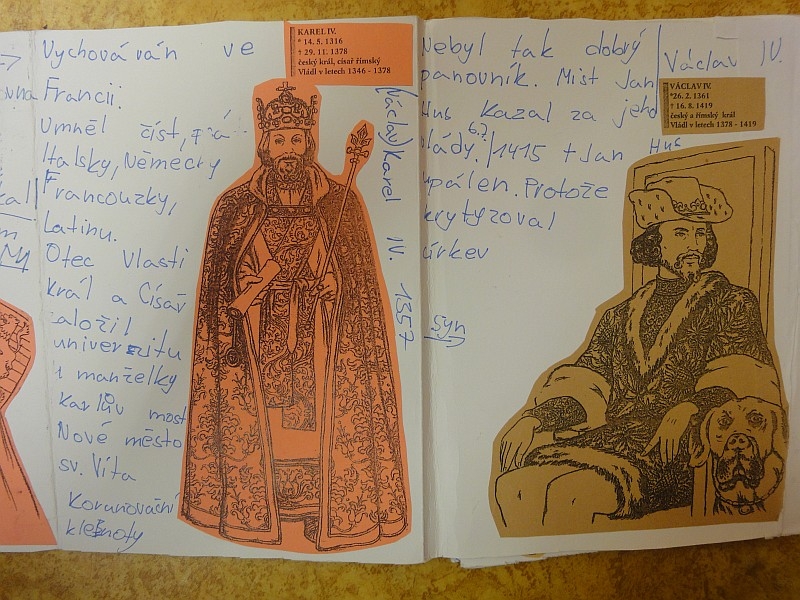 Vychováván ve
Francii.
Umněl číst, psá-
Italsky, Německy
Francouzky,
Latinu.
Otec Vlasti
král a Císař
založil
univerzitu
4 manželky
Karlův most
Nové město
sv. Víta
Korunovační
klenoty
KAREL IV.
* 14. 5. 1316
† 29. 11. 1378
český král, císař římský
Vládl v letech 1346 - 1378
(Václav) Karel IV. 1357
Nebyl tak dobrý
panovník. Mist Jan
Hus Kazal za jeho
vlády. 6.7. 1415 + Jan Hus
upálen. Protože
krytyzoval
církev
syn
Václav IV.
VÁCLAV IV.
*26. 2. 1361
† 16. 8. 1419
český a římský král
Vládl v letech 1378 - 1419